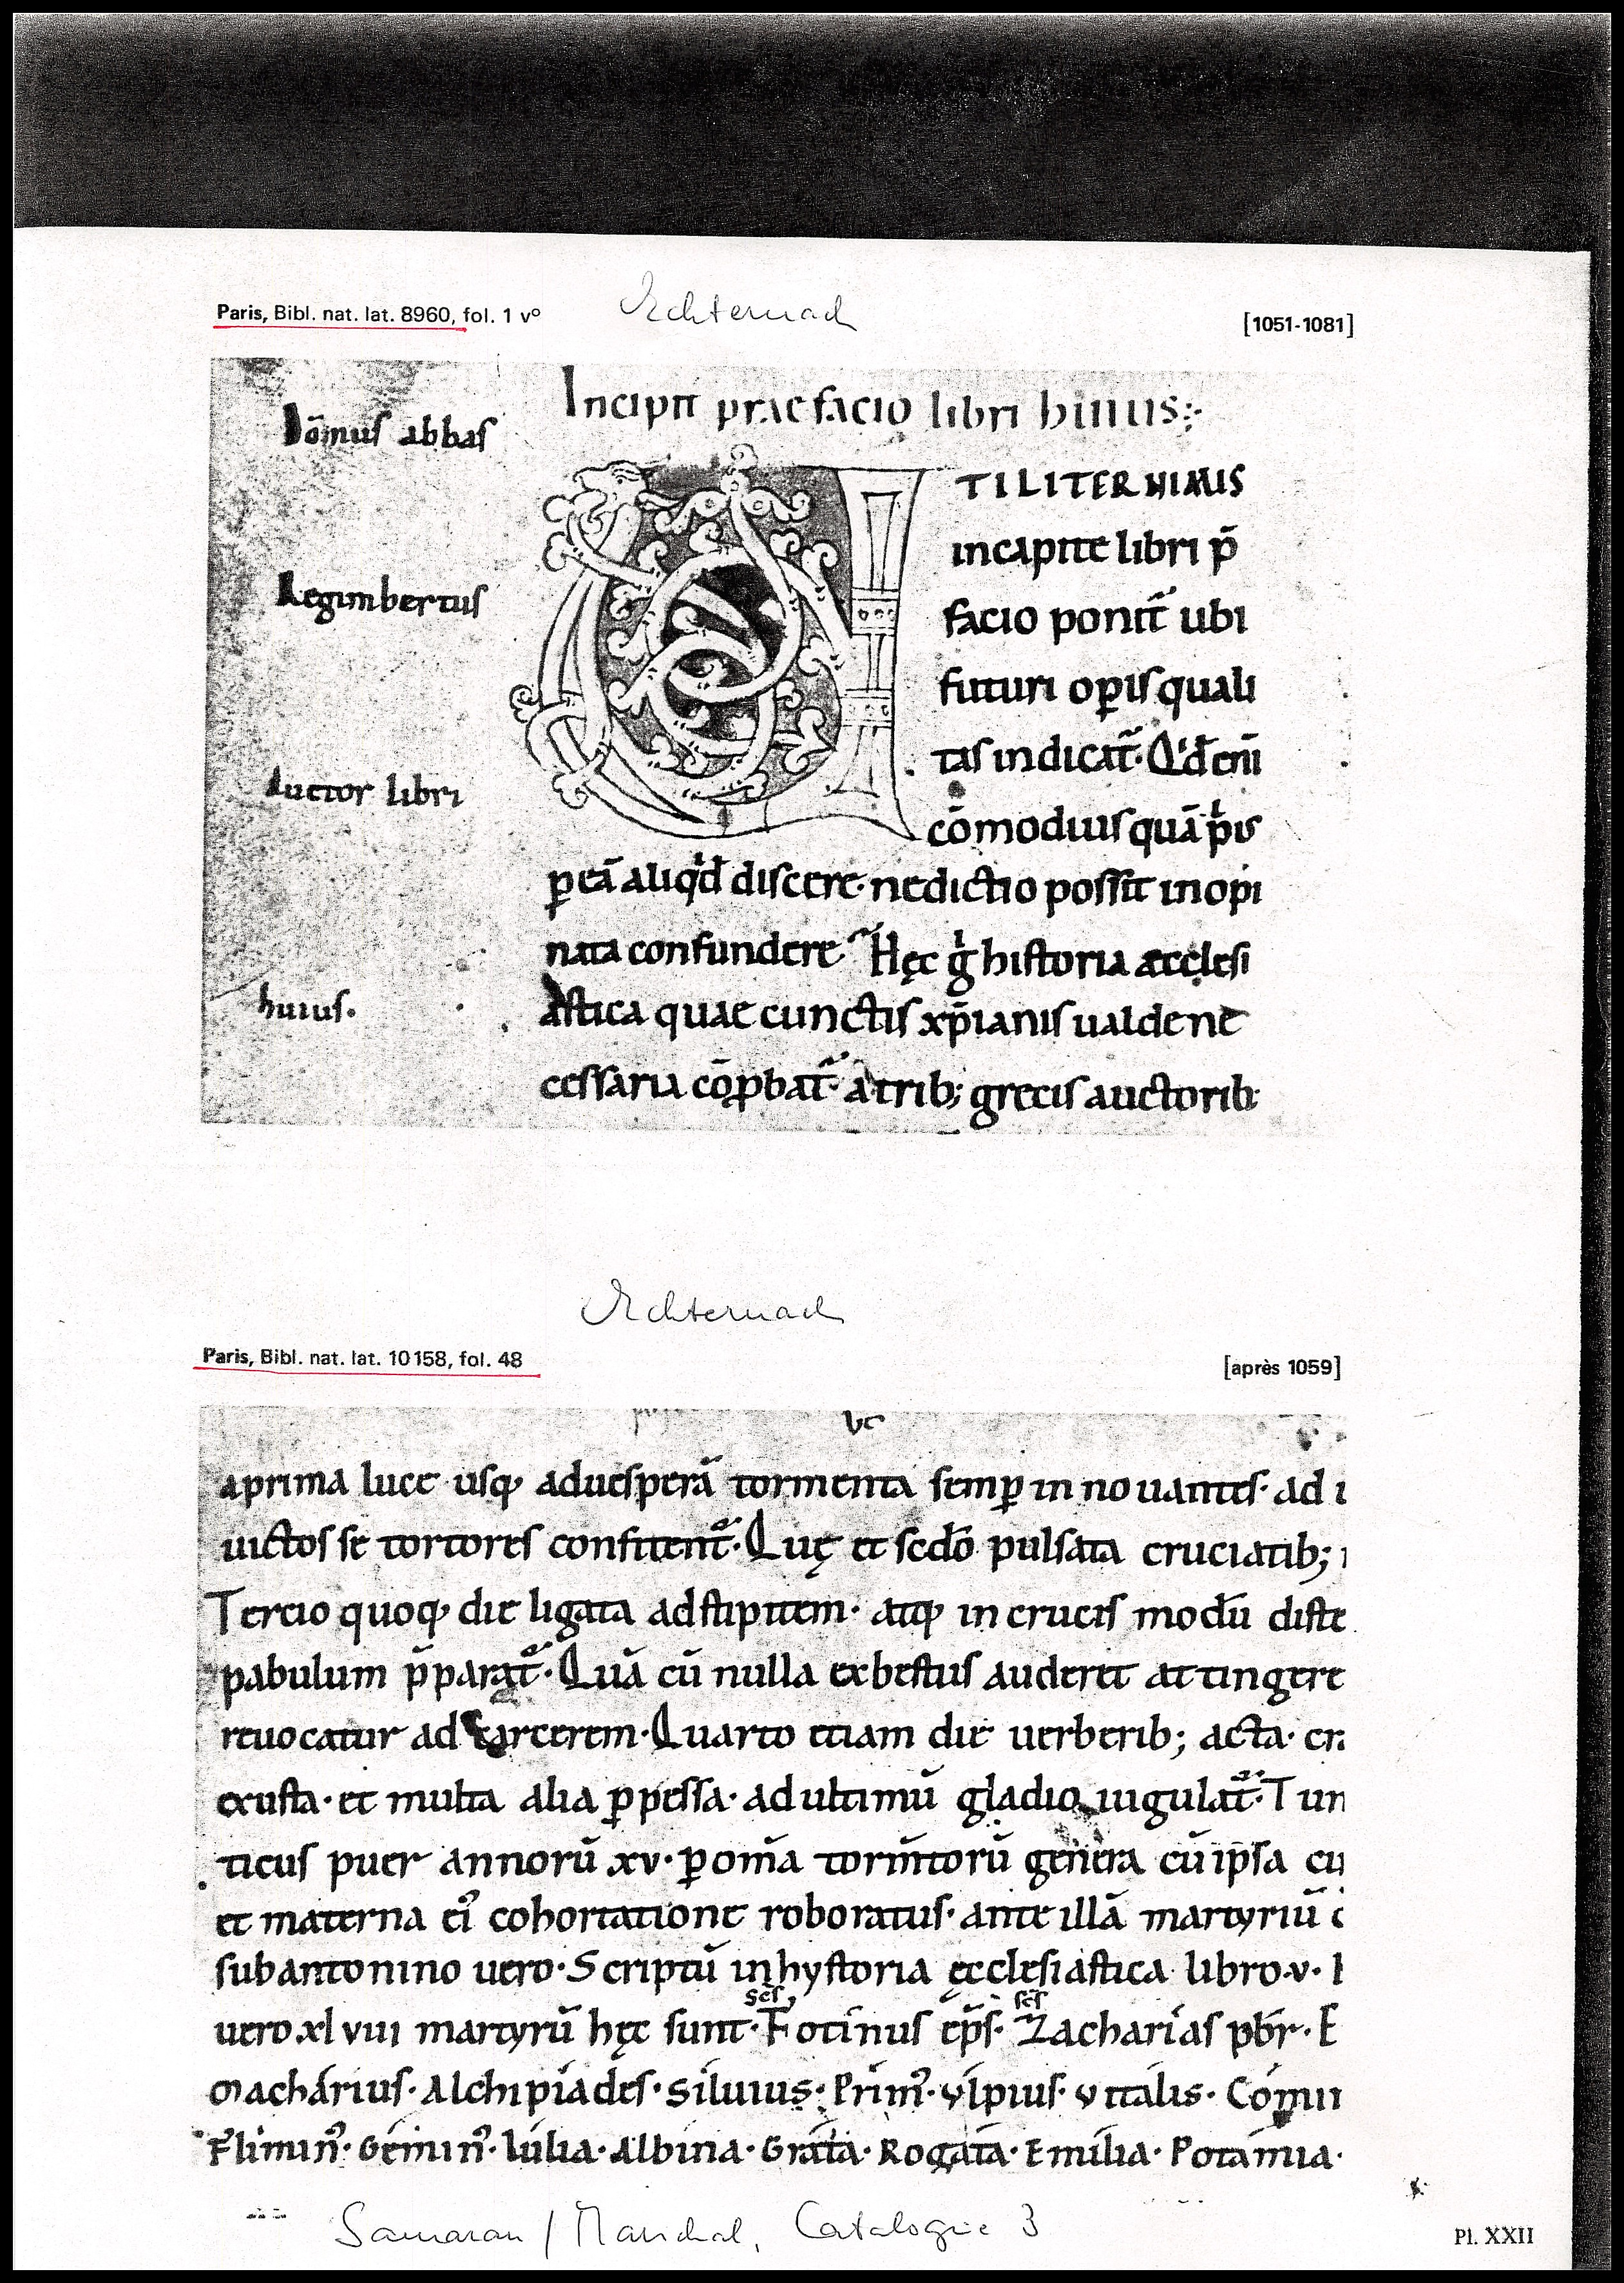 Paris, Bibl. nat. lat. 8960, fol. 1 vº
Echternach
[1051-1081]
Incipit praefacio libri hiuus:
Dōnus abbas
Regimbertus
Auctor libri
huius.
TILITER NIMIS
incapite libri p̄
facio ponit᷑ ubi
futuri oꝑis quali
tas indicat᷑. Qd̄ enī
cōmodius quā pͥus
ꝑ eā aliqͥd discere. ne dictio possit inopi
nata confundere Hęc gͥ historia aecclesi
Astica quae cunctis xp̄ianis ualde ne
cessaria cōꝓbat᷑. atrib; grecis auctorib:
Echternach
Paris, Bibl. nat. lat. 10158, fol. 48
[après 1059]
aprima luce usq; aduesperā tormenta semꝑ in nouantes. ad i
uictos se tortores confitent᷑. Quę et scdō pulsata cruciatib;
Tercio quoq; die ligata adstipitem. atq; in crucis modū diste
pabulum p̄parat᷑. Quā cū nulla exbestiis auderet attingere
reuocatur ad carcerem. Quarto etiam die uerberib; acta. cra
exusta. et multa alia ꝑpessa. ad ultimū gladio iugulat᷑. Tun
ticus puer annorū xv. ꝑ om̄a torm̄torū genera cū ipsa cu
et materna eiꝰ cohortatione roboratus. ante illā martyriū c
sub antonino uero. Scriptū in hystoria ęcclesiastica libro.v. I
uero.xlviii martyrū hęc sunt. scs̄ Fotínus ep̄s. scs̄ Zacharías pbr̄. E
Machárius. Alchipíades. Síluius. Prímꝰ. Vlpius. Vitális. Cómi
Flíminꝰ. Géminꝰ. Iúlia. Albína. Gráta. Rogáta. Emília. Potámia.
Samaran / Marichal, Catalogue 3
Pl. XXII